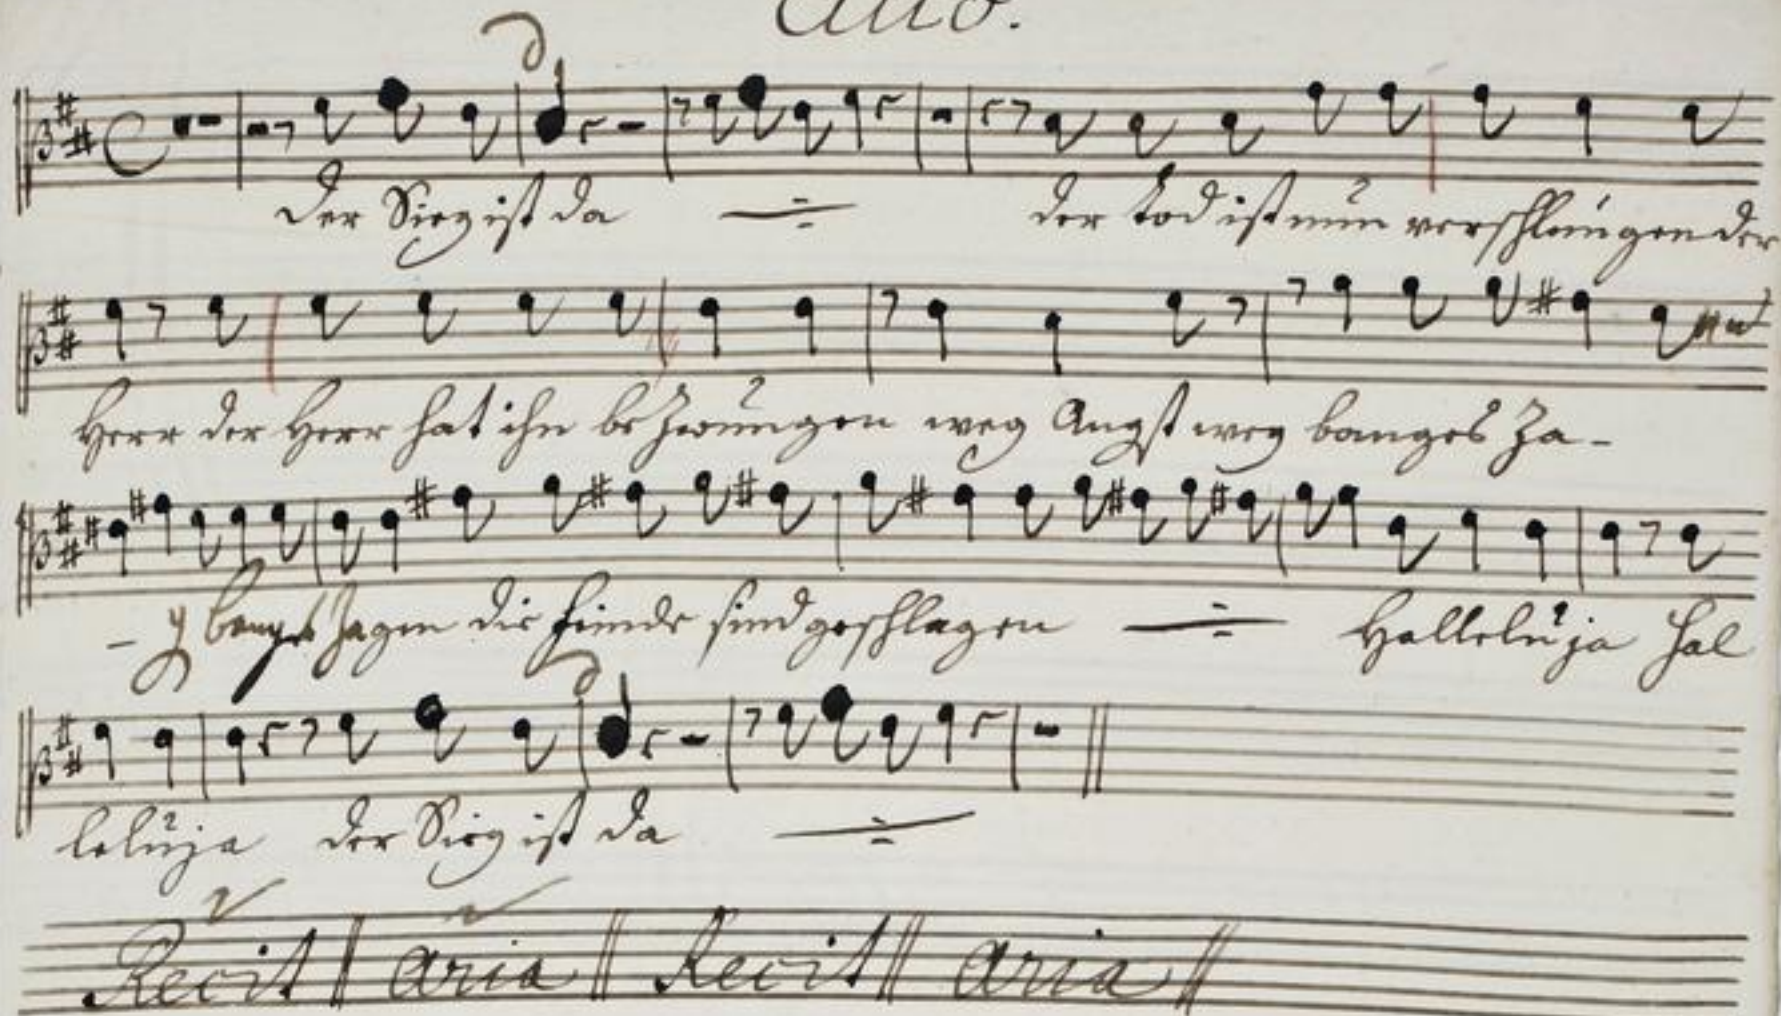 Alto.
Der Sieg ist da der Tod ist nun verschlungen der
Herr der Herr hat ihn bezwungen weg Angst weg banges Za-
- g banges Zagen die Feinde sind geschlagen Halleluja Hal
leluja der Sieg ist da
Recit aria Recit aria